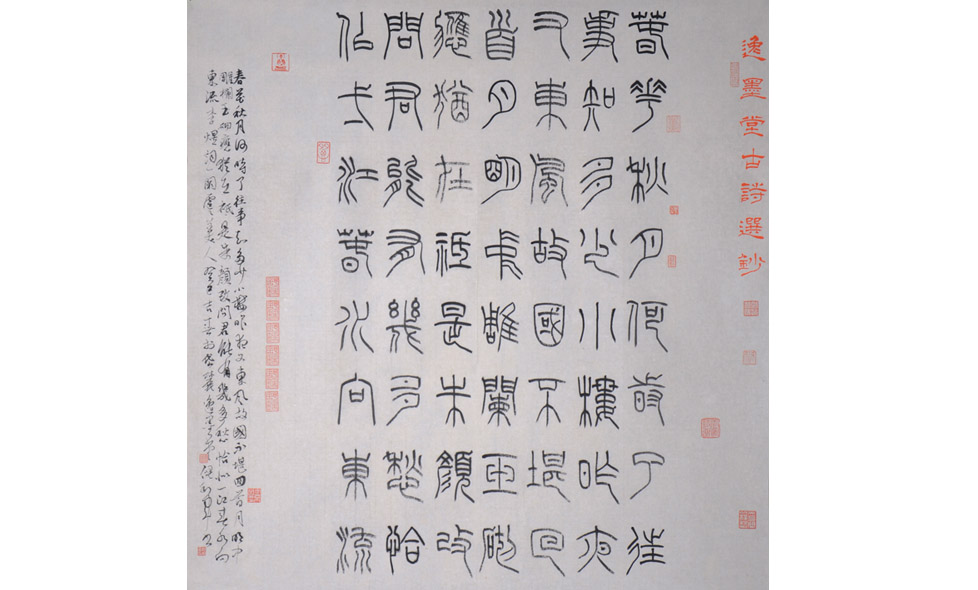 逸墨堂古詩選鈔
春花秋月何時了往
事知多少小樓昨夜
又東風故國不堪回
首月明中雕闌玉砌
應猶在祗是朱顏改
問君能有幾多愁恰
似弌江春水向東流
春花秋月何時了往事知多少小樓昨夜又東風故國不堪回首月明中
雕闌玉砌應猶在祗是朱顏改問君能有幾多愁恰似一江春水向
東流李煜詞一闋虞美人癸巳